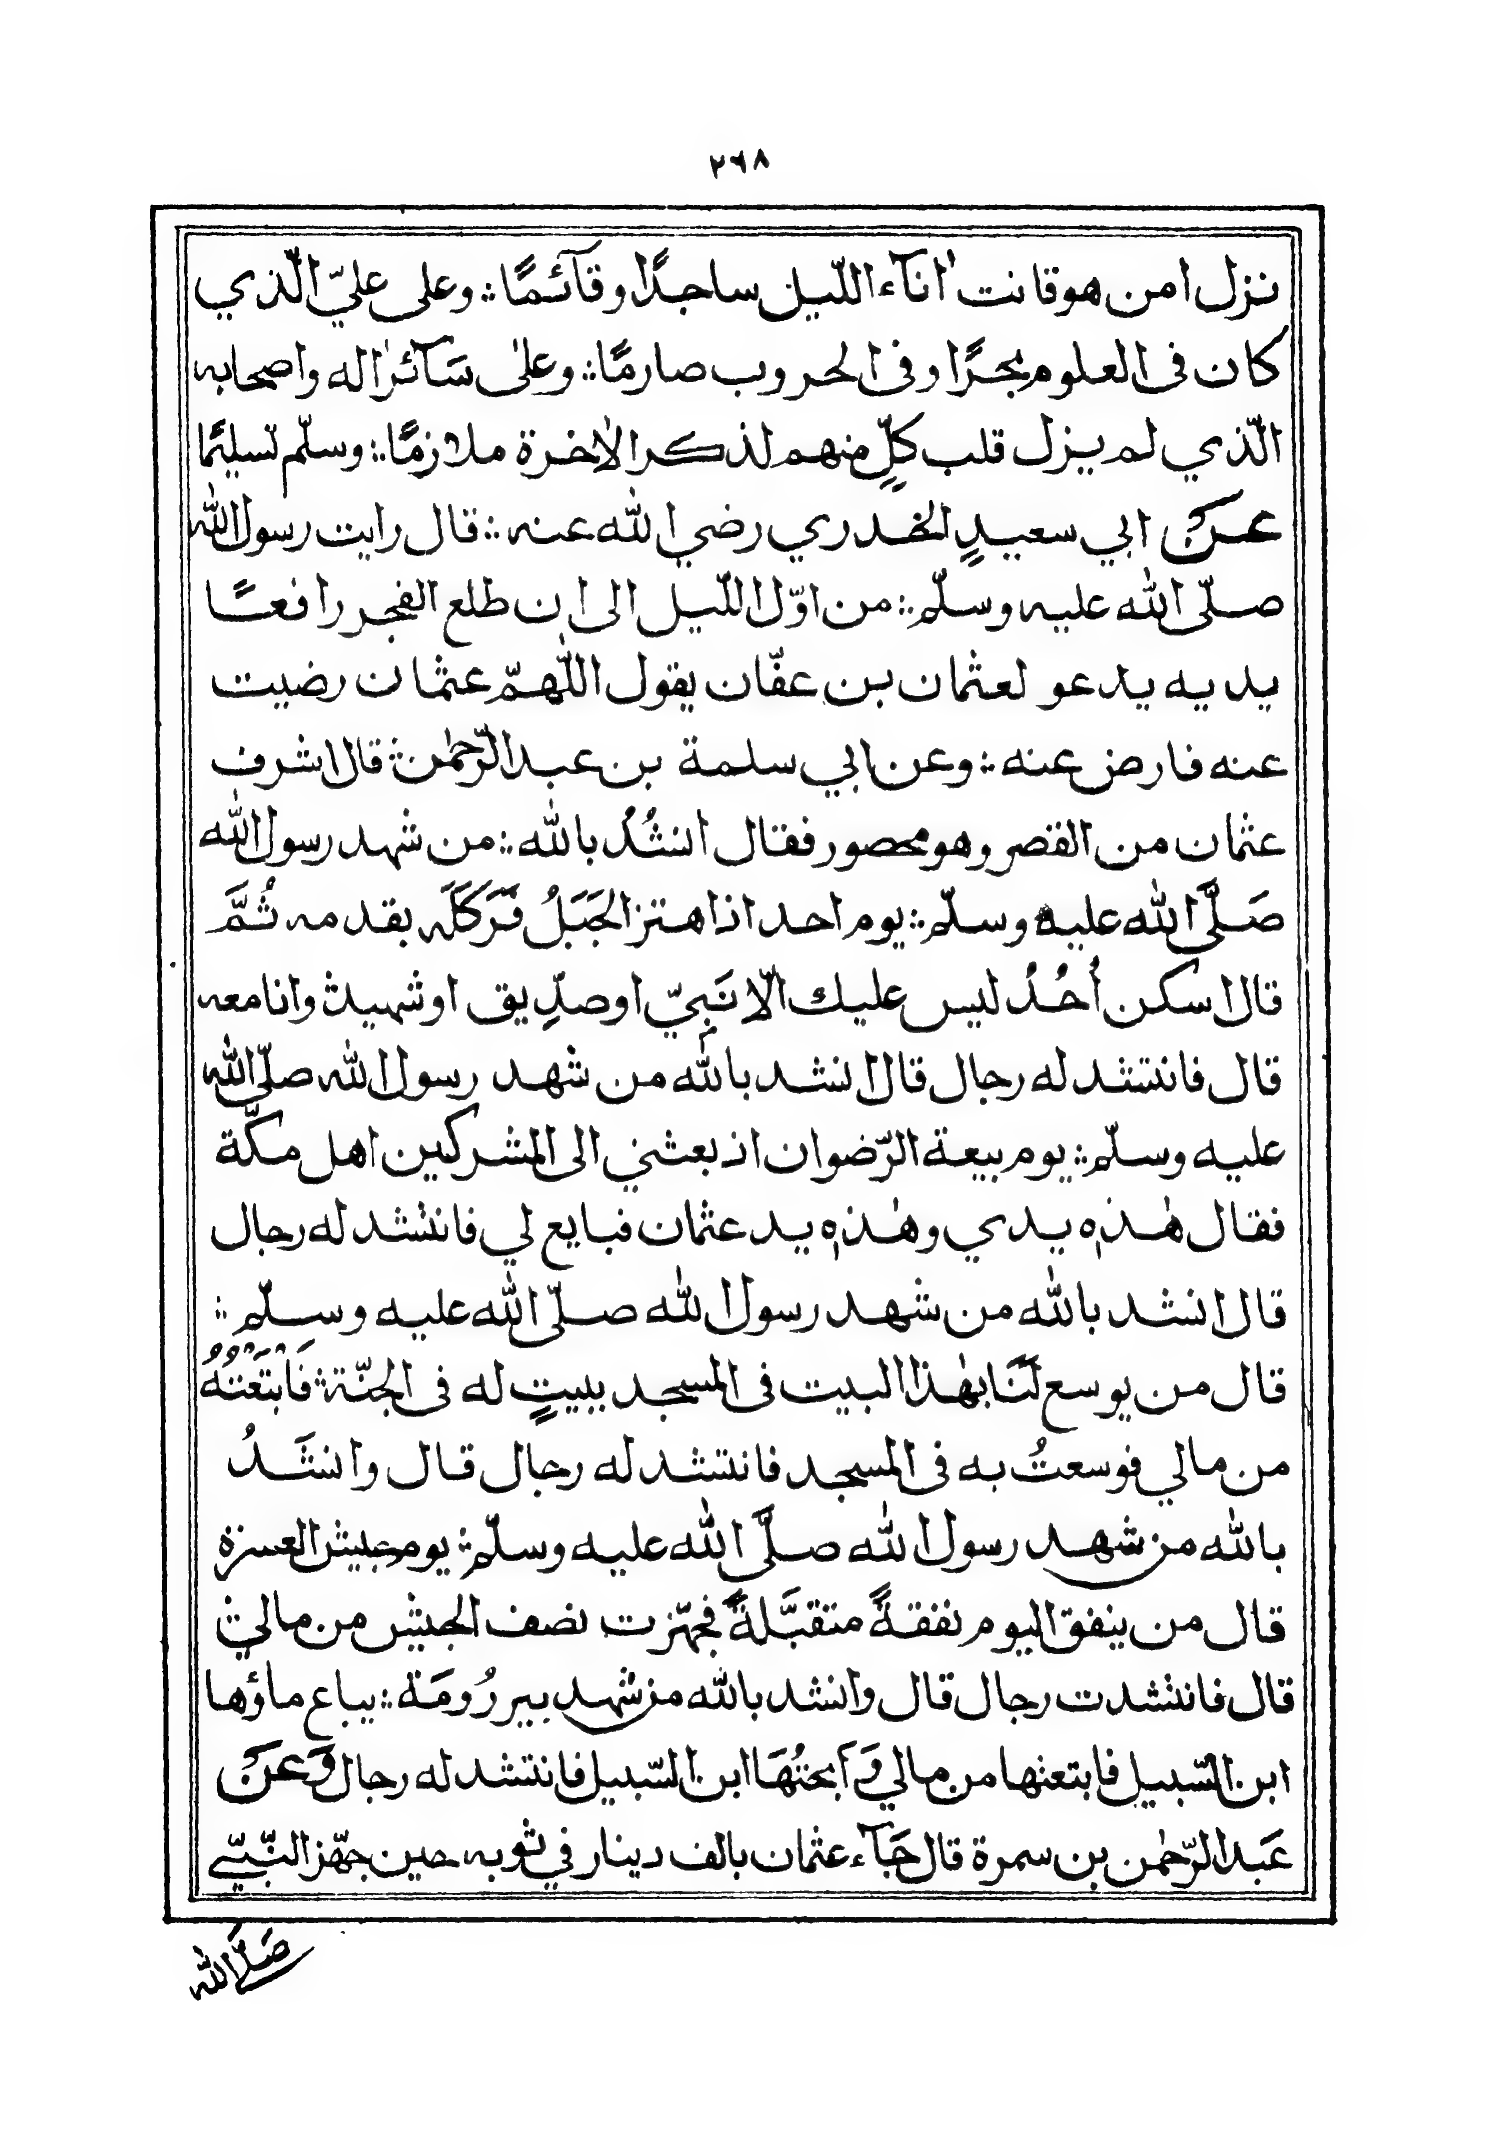 ٢٦٨
نزل امن هو قانت اٰنآء اللّيل ساجدًا وقآئمًا؞ وعلى عليّ الّذي
كان فى العلوم بحرًا وفى الحروب صارمًا؞ وعلىٰ سَآئراٰله واصحابه
الّذي لم يزل قلب كلٍّ منهم لذكر الاٰخرة ملازمًا؞ وسلّم تسليمًا
عن ابي سعيدٍ الخدري رضي الله عنه؞ قال رايت رسول الله
صلّى الله عليه وسلّم؞ من اوّل اللّيل الى ان طلع الفجر رافعًا
يديه يدعو لعثمان بن عفّان يقول اللّٰهمّ عثمان رضيت
عنه فارض عنه؞ وعن ابي سلمة بن عبد الرّحمٰن؞ قال اشرف
عثمان من القصر وهو محصور فقال انشُدُ بالله؞ من شهد رسول الله
صَلَّى الله عليه وسلّم؞ يوم احد اذا هتز الجَبَلُ فَرَكَلَه بقدمه ثُمَّ
قال اسكن أُحُدُ ليس عليك الّا نَبِيّ او صدِّيق او شهيد؞ وانا معه
قال فانتشد له رجال قال انشد بالله من شهد رسول الله صلّى الله
عليه وسلّم؞ يوم بيعة الرّضوان اذ بعثني الى المشركين اهل مكّة
فقال هٰذهٖ يدي وهٰذهٖ يد عثمان فبايع لي فانتشد له رجال
قال انشد بالله من شهد رسول الله صلّى الله عليه وسلّم؞
قال من يوسع لَنَا بهٰذا البيت فى المسجد ببيتٍ له فى الجنّة؞ فَابْتَعْتُهُ
من مالي فوسعتُ به فى المسجد فانتشد له رجال قال وانشَدُ
بالله من شهد رسول الله صلَّى الله عليه وسلّم؞ يوم جيش العسرة
قال من ينفق اليوم نفقةً متقبَّلةً فجهّزت نصف الجيش من مالي؞
قال فانتشدت رجال قال وانشد بالله من شهد بير رُومَة؞ يباع ماؤها
ابن السّبيل فابتعتها من مالي وَاَبحتُهَا ابن السّبيل فانتشد له رجال وَعَن
عَبد الرّحمٰن بن سمرة قال جَآء عثمان بالف دينار في ثوبه حين جهّز النّبيّ
صَلَّى الله